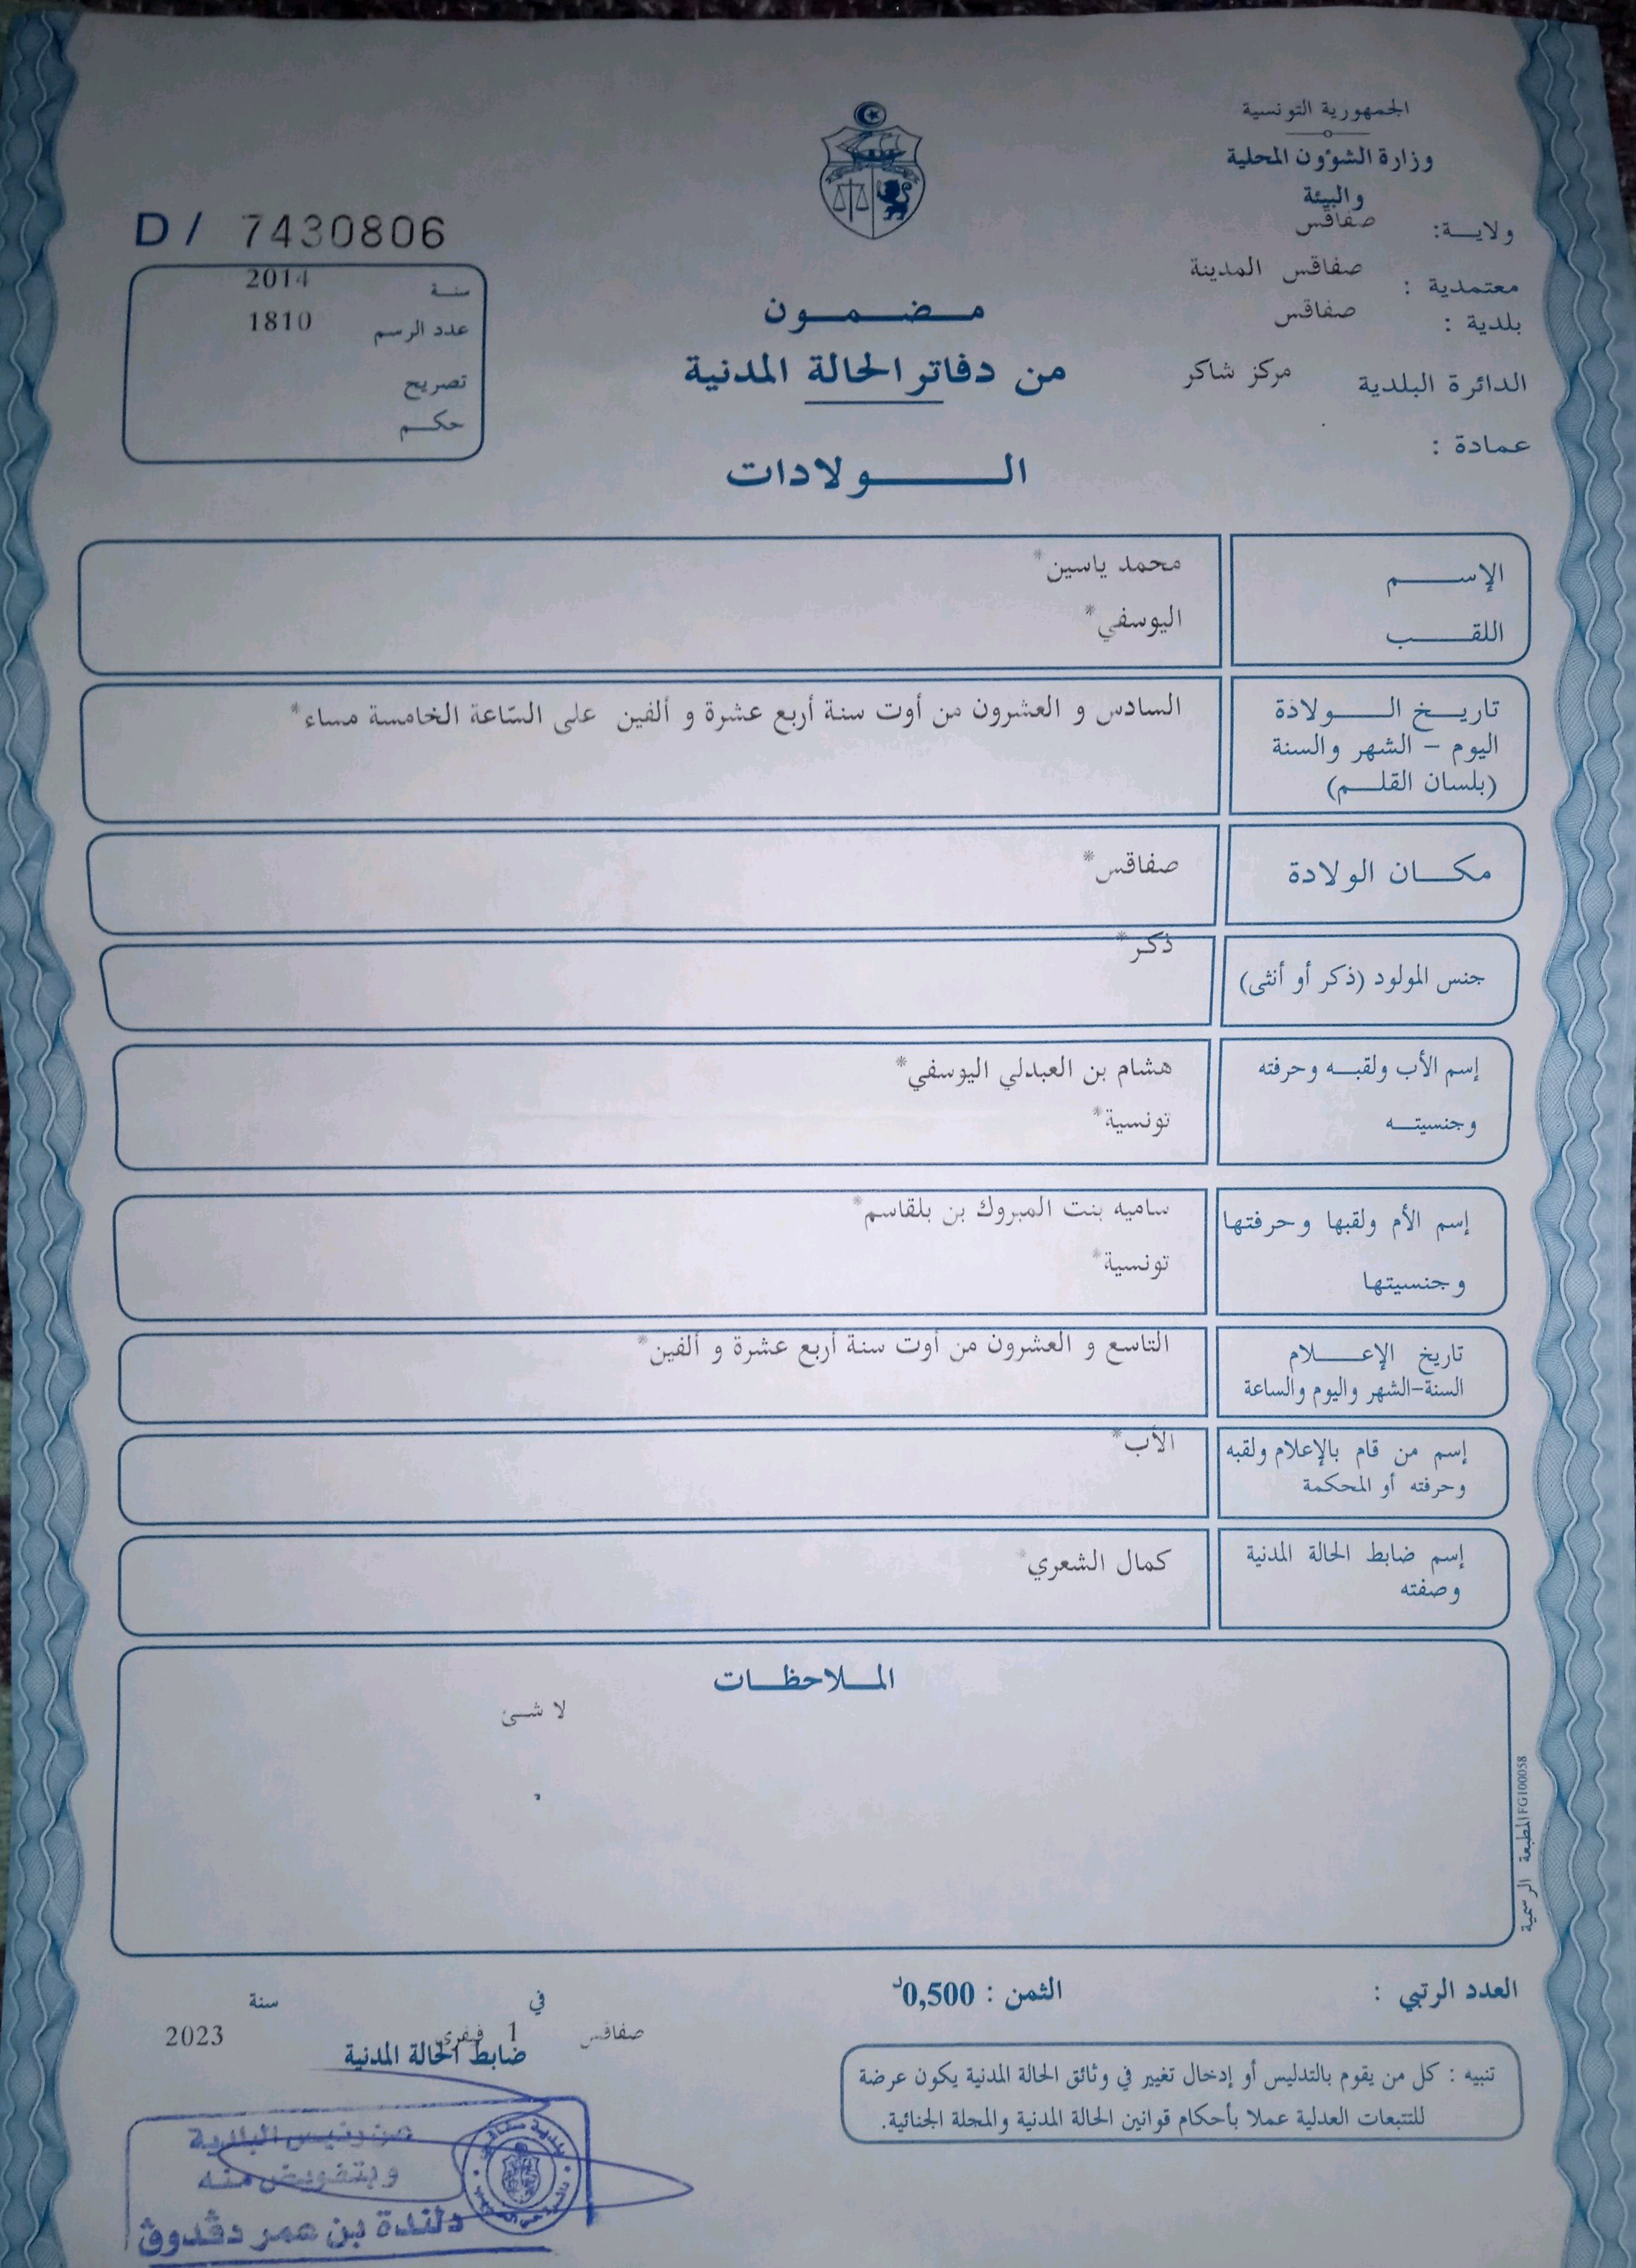 الجمهورية التونسية
وزارة الشؤون المحلية
والبيئة
ولاية: صفاقس
معتمدية : صفاقس المدينة
بلدية : صفاقس
الدائرة البلدية مركز شاكر
عمادة :
D/ 7430806
سنة 2014
عدد الرسم 1810
تصريح
حكم
مضمون
من دفاتر الحالة المدنية
الولادات
الإسم محمد ياسين*
اللقب اليوسفي*
تاريخ الولادة السادس و العشرون من أوت سنة أربع عشرة و ألفين على السّاعة الخامسة مساء*
اليوم - الشهر والسنة
(بلسان القلم)
مكان الولادة صفاقس*
جنس المولود (ذكر أو أنثى) ذكر*
إسم الأب ولقبه وحرفته هشام بن العبدلي اليوسفي*
وجنسيته تونسية*
إسم الأم ولقبها وحرفتها ساميه بنت المبروك بن بلقاسم*
وجنسيتها تونسية*
تاريخ الإعلام التاسع و العشرون من أوت سنة أربع عشرة و ألفين*
السنة-الشهر واليوم والساعة
إسم من قام بالإعلام ولقبه الأب*
وحرفته أو المحكمة
إسم ضابط الحالة المدنية كمال الشعري*
وصفته
الملاحظات
لا شئ
المطبعة الرسمية FG100058
العدد الرتبي :
الثمن : 0,500د
في سنة
صفاقس 1 فيفري 2023
ضابط الحالة المدنية
تنبيه : كل من يقوم بالتدليس أو إدخال تغيير في وثائق الحالة المدنية يكون عرضة
للتتبعات العدلية عملا بأحكام قوانين الحالة المدنية والمجلة الجنائية.
عن رئيس البلدية
وبتفويض منه
دلندة بن عمر دقدوق